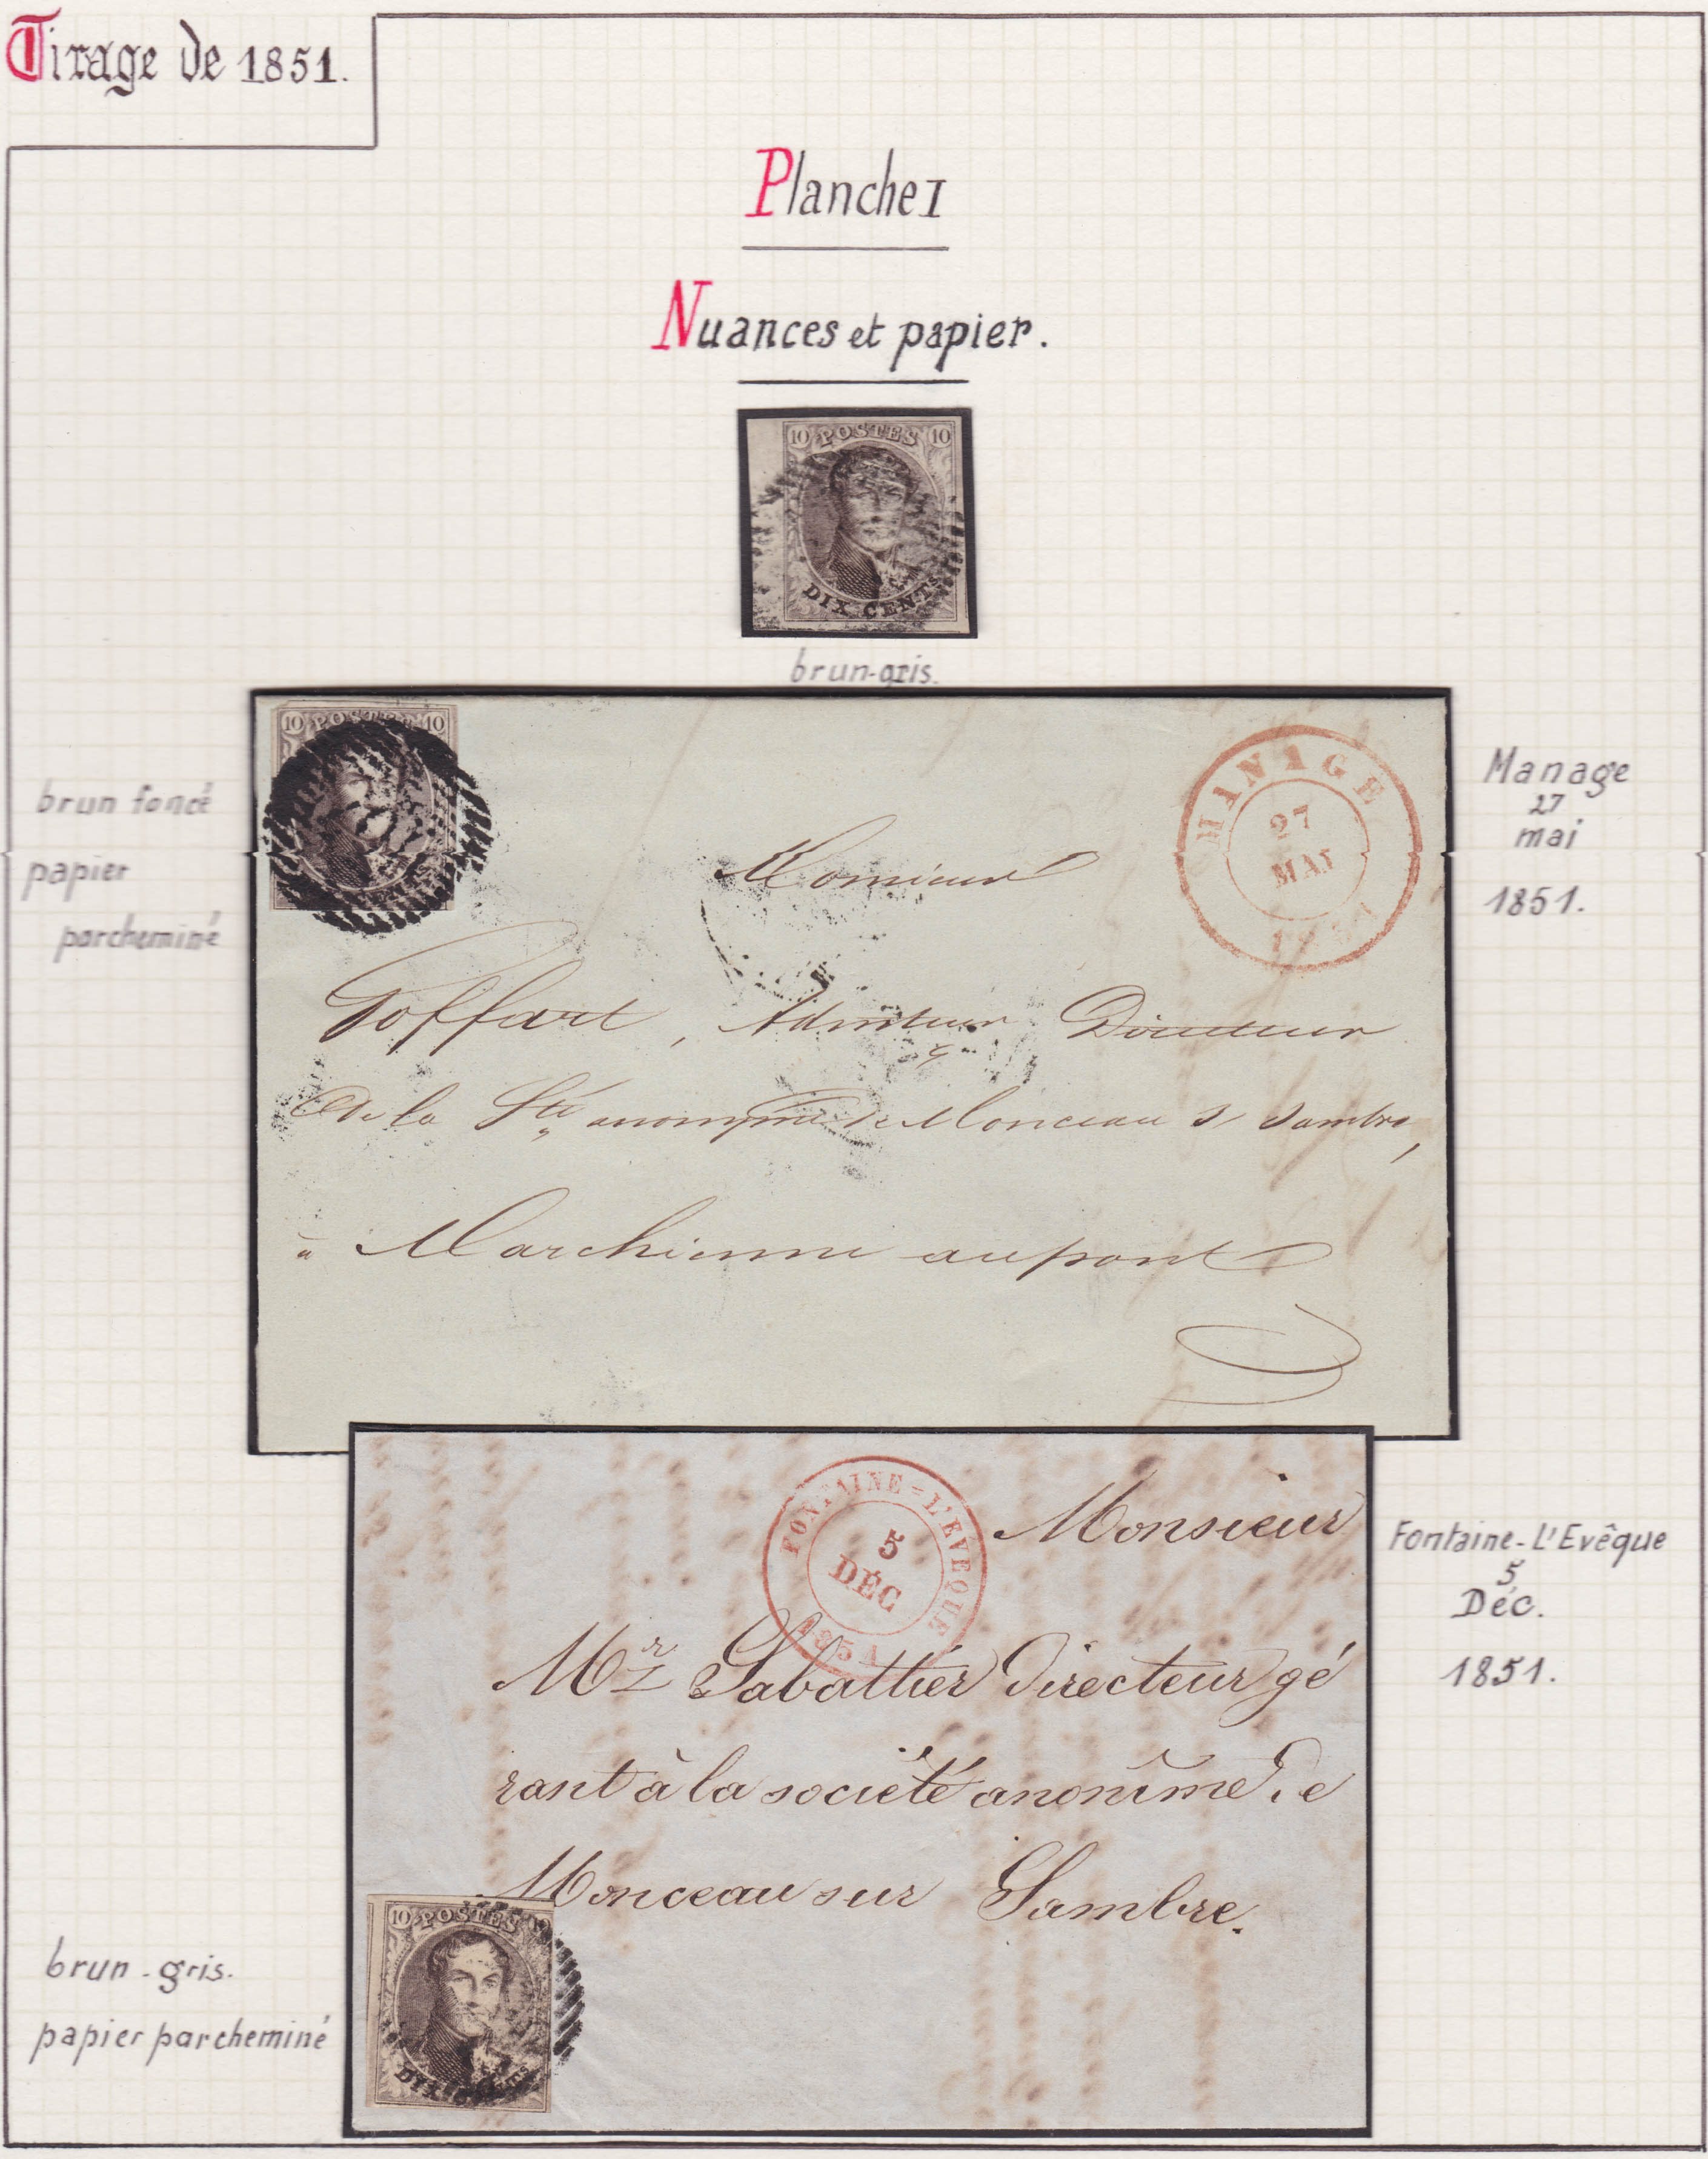 Tirage de 1851.
Planche I
Nuances et papier.
10 POSTES 10
DIX CENTS
brun-gris.
10 POSTES 10
MANAGE
27
MAI
brun foncé
papier
parcheminé
Manage
27
mai
1851.
Monsieur
Goffart, Admteur Directeur
De la Sté anonyme de Monceau s/ Sambre,
à Marchienne au pont
FONTAINE-L'EVEQUE
5
DÉC
1851
Monsieur
Mr Sabattier Directeur gé
rant à la société anonime de
Monceau sur Sambre.
10 POSTES
Fontaine-L'Evêque
5
Déc.
1851.
brun-gris.
papier parcheminé